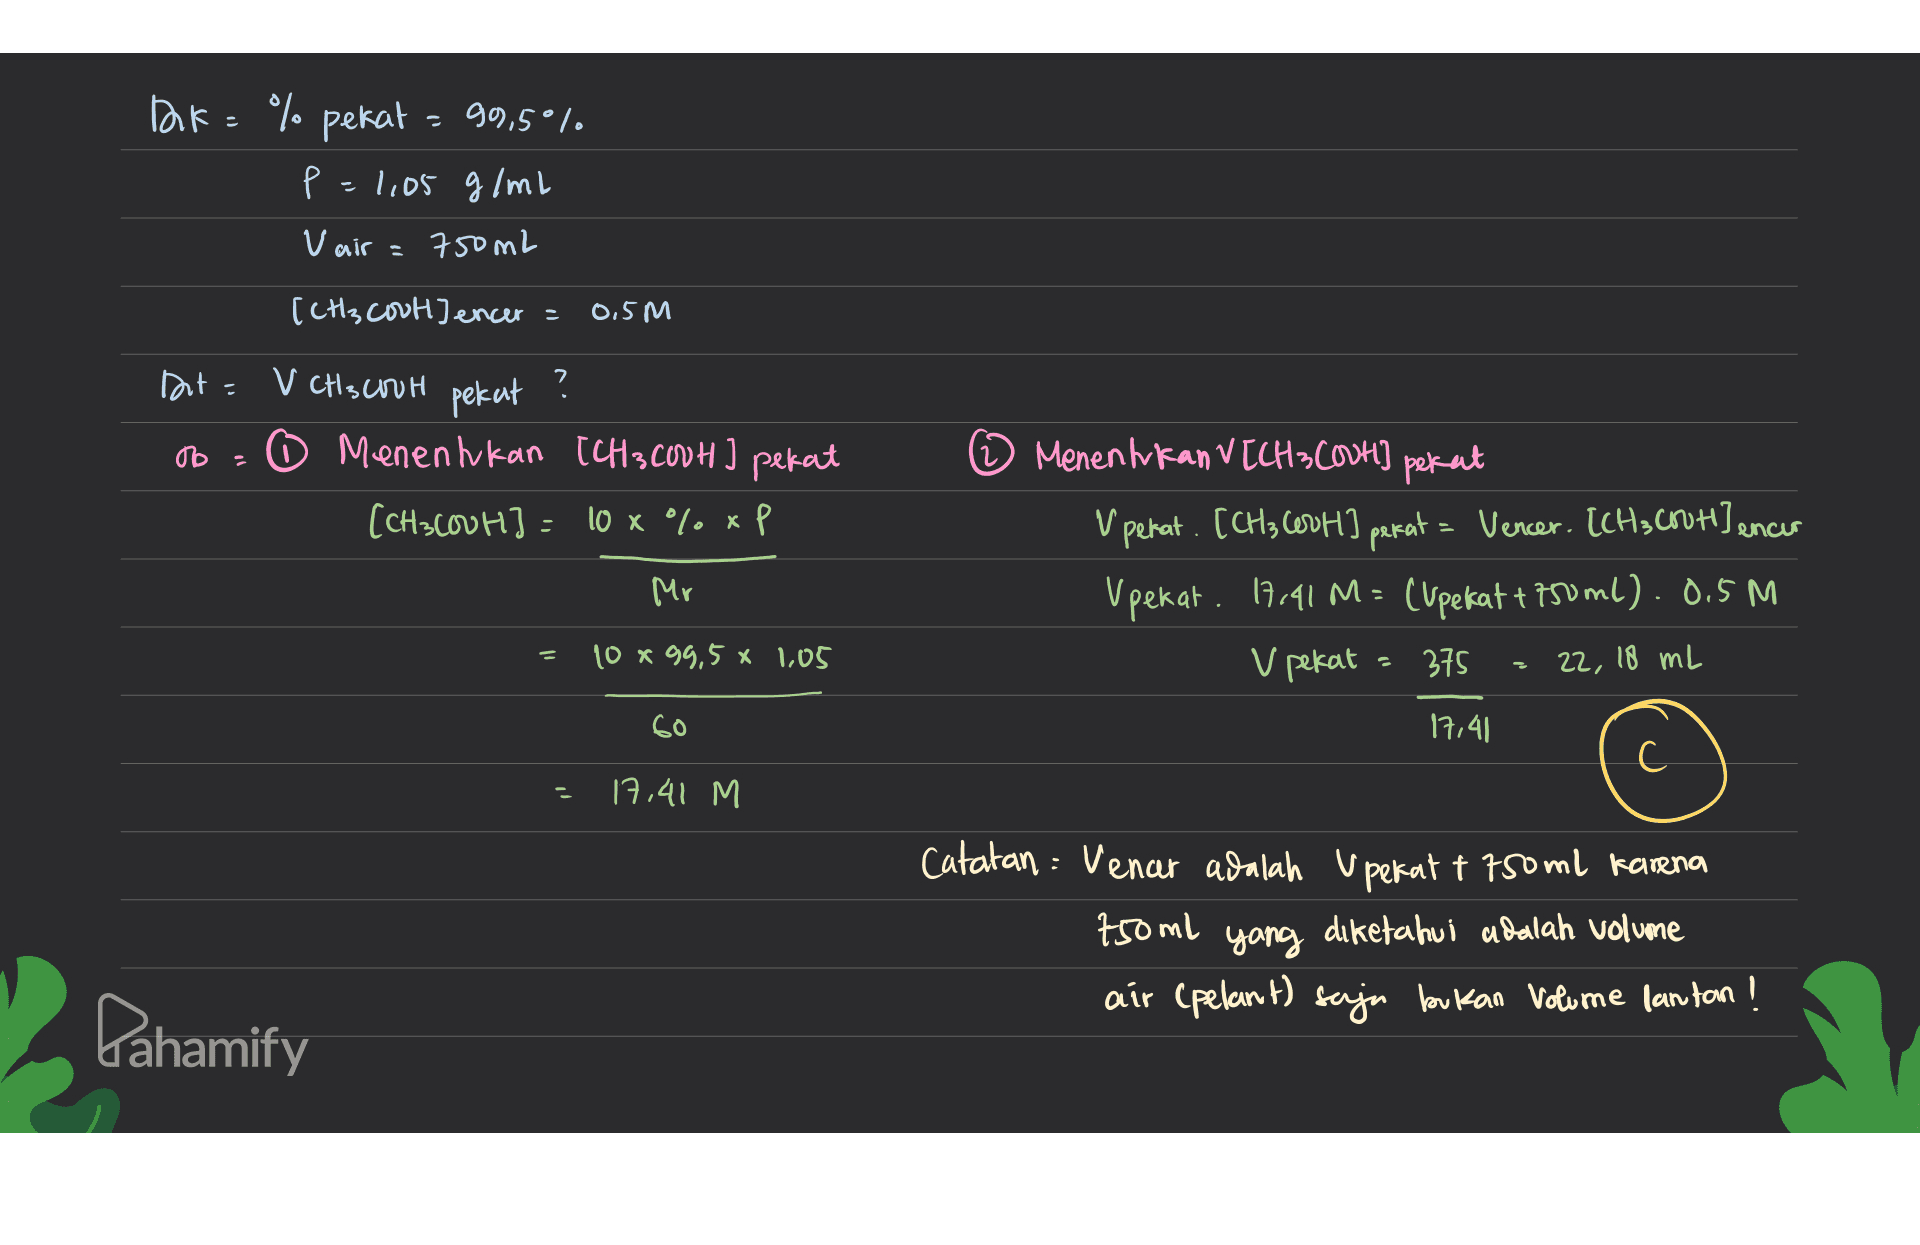 Dik = % pekat = 99,5%
ρ = 1,05 g/mL
V air = 750 mL
[CH₃COOH] encer = 0,5 M
Dit = V CH₃COOH pekat ?
Jb = ① Menentukan [CH₃COOH] pekat
[CH₃COOH] = 10 x % x ρ
Mr
= 10 x 99,5 x 1,05
60
= 17,41 M
② Menentukan V [CH₃COOH] pekat
V pekat . [CH₃COOH] pekat = V encer . [CH₃COOH] encer
V pekat . 17,41 M = (V pekat + 750 mL) . 0,5 M
V pekat = 375 = 22,18 mL
17,41
C
Catatan = V encer adalah V pekat + 750 mL karena
750 mL yang diketahui adalah volume
air (pelarut) saja bukan Volume larutan !
Pahamify